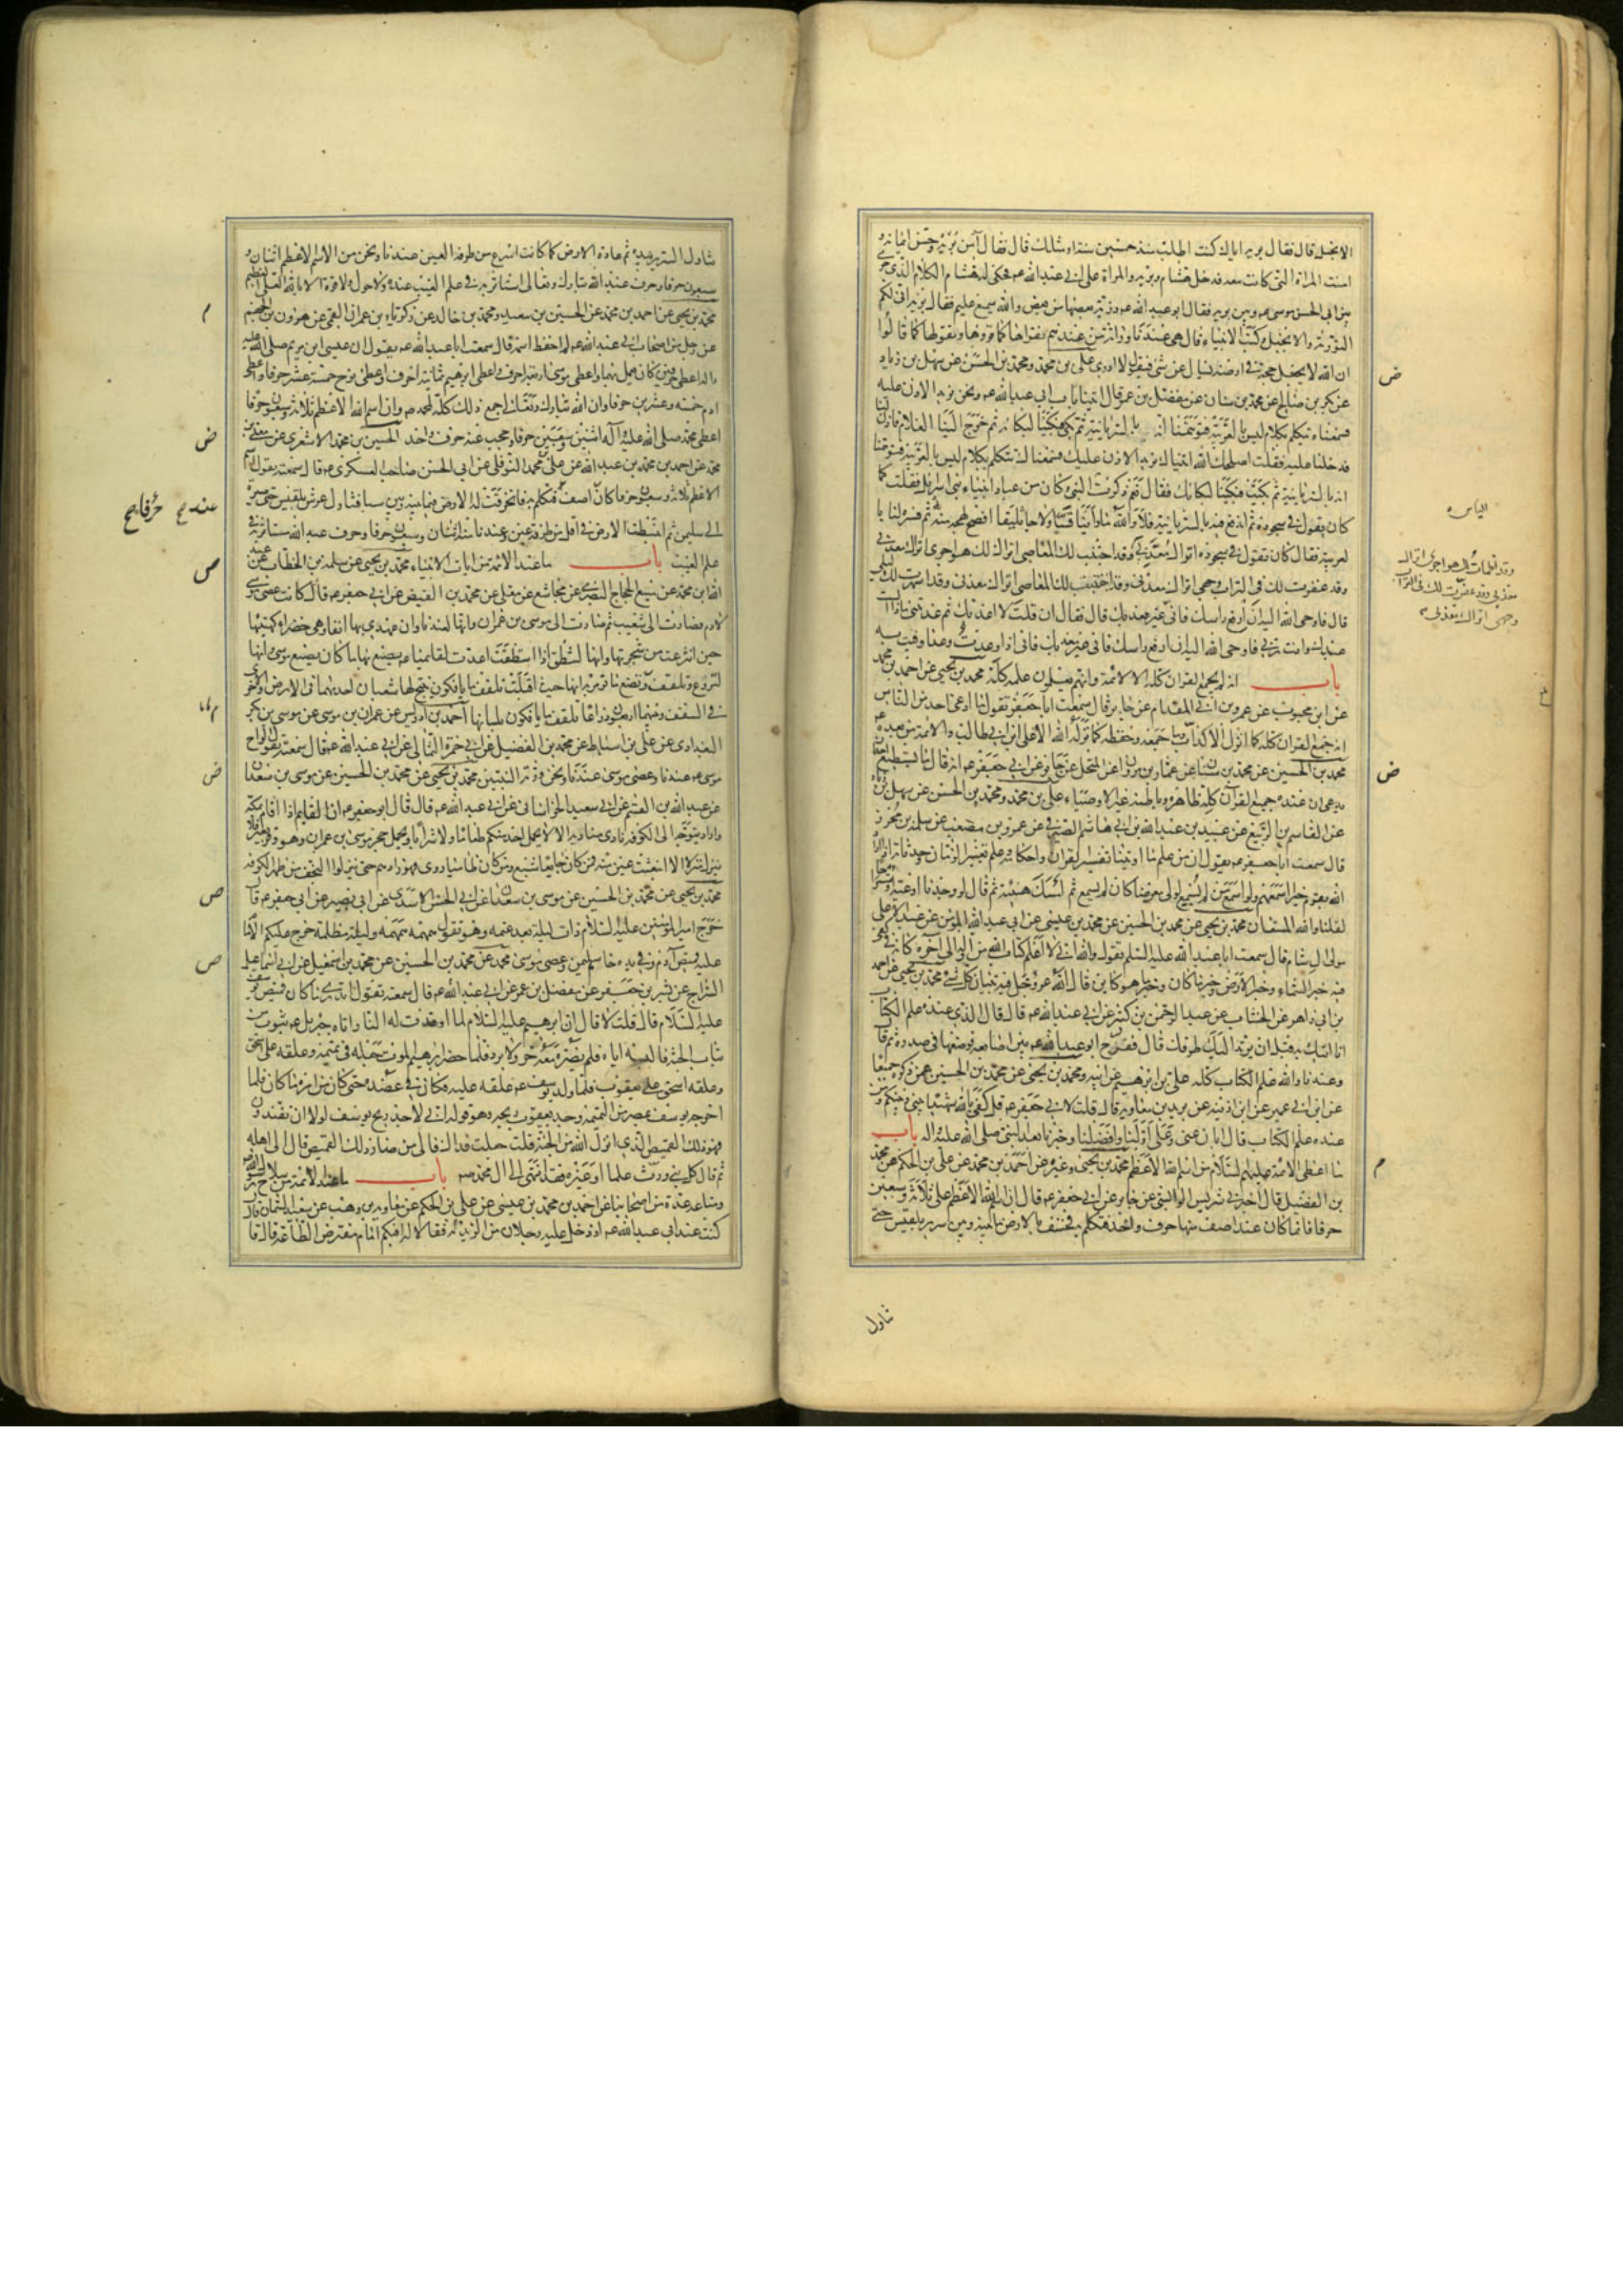 الانجيل قال فقال بريه اياك كنت اطلب منذ خمسين سنة او مثلك قال فقال آمن بريه وحسن ايمانه و
امنت المراة التي كانت معه فدخل هشام وبريه والمراة على ابي عبد الله عم فحكى له هشام الكلام الذي جرى
بين ابي الحسن موسى عم وبين بريه فقال ابو عبد الله عم ذرية بعضها من بعض والله سميع عليم فقال بريه انى لكم
التورية والانجيل وكتب الانبياء قال هي عندنا وراثة من عندهم نقراها كما قروها ونقولها كما قالوا
ان الله لا يجعل حجة في ارضه يسال عن شئ فيقول لا ادري على بن محمد ومحمد بن الحسن عن سهل بن زياد
عن بكر بن صالح عن محمد بن سنان عن مفضل بن عمر قال اتينا باب ابي عبد الله عم ونحن نريد الاذن عليه
فسمعناه يتكلم بكلام ليس بالعربية فتوهمنا انه بالسريانية ثم بكى فبكينا لبكائه ثم خرج الينا الغلام فاذن لنا
فدخلنا عليه فقلت اصلحك الله اتيناك نريد الاذن عليك فسمعناك تتكلم بكلام ليس بالعربية فتوهمنا
انه بالسريانية ثم بكيت فبكينا لبكائك فقال نعم ذكرت الياس النبي وكان من عباد انبياء بني اسرائيل فقلت كما
كان يقول في سجوده ثم اندفع فيه بالسريانية فلا والله ما راينا قسا ولا جاثليقا افصح لهجة منه ثم فسره لنا با
لعربية فقال كان يقول في سجوده اتراك معذبي وقد اجتنبت لك المعاصي اتراك
وقد عفرت لك في التراب وجهي اتراك معذبي وقد اجتنبت لك المعاصي اتراك معذبي وقد اسهرت لك ليلي
قال فاوحى الله اليه ان ارفع راسك فاني غير معذبك قال فقال ان قلت لا اعذبك ثم عذبتني ماذا الست
عبدك وانت ربي فاوحى الله اليه ان ارفع راسك فاني غير معذبك فاني اذا وعدت وعدا وفيت به
باب انه لم يجمع القران كله الا الائمة وانهم يعلمون علمه كله محمد بن يحيى عن احمد بن محمد
عن ابن محبوب عن عمرو بن ابي المقدام عن جابر قال سمعت ابا جعفر يقول ما ادعى احد من الناس
انه جمع القران كله كما انزل الا كذاب وما جمعه وحفظه كما نزله الله الا علي بن ابي طالب والائمة من بعده
محمد بن الحسين عن محمد بن سنان عن عمار بن مروان عن المنخل عن جابر عن ابي جعفر عم انه قال ما يستطيع احد
يدعي ان عنده جميع القرآن كله ظاهره وباطنه غير الاوصياء على بن محمد ومحمد بن الحسن عن سهل بن زياد
عن القاسم بن الربيع عن عبيد بن عبد الله بن ابي هاشم الصيرفي عن عمرو بن مصعب عن سلمة بن محرز
قال سمعت ابا جعفر عم يقول ان من علم ما اوتينا تفسير القران واحكامه وعلم تغيير الزمان وحدثانه اذا اراد
الله بقوم خيرا اسمعهم ولو اسمع من لم يسمع لولى معرضا كان لم يسمع ثم امسك هنيئة ثم قال لو وجدنا اوعية او مستراحا
لقلنا والله المستعان محمد بن يحيى عن محمد بن الحسين عن محمد بن عيسى عن ابي عبد الله المؤمن عن عبد الاعلى
مولى ال سام قال سمعت ابا عبد الله عليه السلم يقول والله اني لاعلم كتاب الله من اوله الى آخره كانه في كفي
فيه خبر السماء وخبر الارض وخبر ما كان وخبر ما هو كاين قال الله عز وجل فيه تبيان كل شئ محمد بن يحيى عن احمد
بن ابي زاهر عن الخشاب عن عبد الرحمن بن كثير عن ابي عبد الله عم قال قال الذي عنده علم الكتاب
انا اتيك به قبل ان يرتد اليك طرفك قال ففرج ابو عبد الله عم بين اصابعه فوضعها في صدره ثم قا
وعندنا والله علم الكتاب كله علي بن ابراهيم عن ابيه ومحمد بن يحيى عن محمد بن الحسين عمن ذكره جميعا
عن ابن ابي عمير عن ابن اذينة عن بريد بن معاوية قال قلت لابي جعفر عم قل كفى بالله شهيدا بيني وبينكم ومن
عنده علم الكتاب قال ايانا عنى وعلي اولنا وافضلنا وخيرنا بعد النبي صلى الله عليه اله باب
ما اعطى الائمة عليهم السلام من اسم الله الاعظم محمد بن يحيى وغيره عن احمد بن محمد عن علي بن الحكم عن محمد
بن الفضيل قال اخبرني شريس الوابشي عن جابر عن ابي جعفر عم قال ان اسم الله الاعظم على ثلاثة وسبعين
حرفا فانما كان عند اصف منها حرف واحد فتكلم به فخسف بالارض ما بينه وبين سرير بلقيس حتى
تناول
الياس
ض
ض
م
تناول السرير بيده ثم عادت الارض كما كانت اسرع من طرفة العين عندنا ونحن من الاسم الاعظم اثنان و
سبعون حرفا وحرف عند الله تبارك وتعالى استاثر به في علم الغيب عنده ولا حول ولا قوة الا بالله العلي العظيم
محمد بن يحيى عن احمد بن محمد عن الحسين بن سعيد ومحمد بن خالد عن زكرياء بن عمران القمي عن هرون بن الجهم
عن رجل من اصحاب ابي عبد الله عم لم احفظ اسمه قال سمعت ابا عبد الله عم يقول ان عيسى ابن مريم صلى الله عليه
واله اعطي حرفين كان يعمل بهما واعطي موسى اربعة احرف واعطي ابرهيم ثمانية احرف واعطي نوح خمسة عشر حرفا واعطي
ادم خمسه وعشرين حرفا وان الله تبارك وتعالى جمع ذلك كله لمحمد ص وان اسم الله الاعظم ثلاثة وسبعون حرفا
اعطي محمد صلى الله عليه آله اثنين وسبعين حرفا وحجب عنه حرف واحد الحسين بن محمد الاشعري عن معلى بن
محمد عن احمد بن محمد بن عبد الله عن علي بن محمد النوفلي عن ابي الحسن صاحب العسكر عم قال سمعته يقول اسم الله
الاعظم ثلاثة وسبعون حرفا كان عند آصف فتكلم به فانخرقت له الارض فيما بينه وبين سبا فتناول عرش بلقيس حتى صيره
الى سليمن ثم انبسطت الارض في اقل من طرفة عين وعندنا منه اثنان وسبعون حرفا وحرف عند الله مستاثر به في
علم الغيب باب ما عند الائمة من ايات الانبياء محمد بن يحيى عن سلمة بن الخطاب عن عبد
الله بن محمد عن منيع بن الحجاج البصري عن مجاشع عن معلى عن محمد بن الفيض عن ابي جعفر عم قال كانت عصى موسى
لادم فصارت الى شعيب ثم صارت الى موسى بن عمران وانها لعندنا وان عهدي بها انفا وهي خضراء كهيئتها
حين انتزعت من شجرتها وانها لتنطق اذا استنطقت اعدت لقائمنا عم يصنع بها ما كان يصنع موسى وانها
لتروع وتلقف ما يافكون وتصنع ما تؤمر به انها حيث اقبلت تلقف ما يافكون يفتح لها شعبتان احديهما في الارض والاخرى
في السقف وبينهما اربعون ذراعا تلقف ما يافكون بلسانها احمد بن ادريس عن عمران بن موسى عن موسى بن جعفر
البغدادي عن علي بن اسباط عن محمد بن الفضيل عن ابي حمزة الثمالي عن ابي عبد الله عم قال سمعته يقول الواح
موسى عم عندنا وعصى موسى عندنا ونحن ورثة النبيين محمد بن يحيى عن محمد بن الحسين عن موسى بن سعدان
عن عبد الله بن القسم عن ابي سعيد الخراساني عن ابي عبد الله عم قال قال ابو جعفر عم ان القايم اذا قام بمكة
واراد يتوجه الى الكوفة نادى مناديه الا لا يحمل احد منكم طعاما ولا شرابا ويحمل حجر موسى بن عمران وهو وقر بعير فلا
ينزل منزلا الا انبعث عين منه فمن كان جايعا شبع ومن كان ظاميا روى فهو زادهم حتى ينزلوا النجف من ظهر الكوفه
محمد بن يحيى عن محمد بن الحسين عن موسى بن سعدان عن ابي الحسن الاسدي عن ابي بصير عن ابي جعفر عم قا
خرج امير المؤمنين عليه السلام ذات ليلة بعد عتمه وهو يقول همهمه همهمه وليلة مظلمة خرج عليكم الامام
عليه قميص آدم وفي يده خاتم سليمن وعصى موسى محمد عن محمد بن الحسين عن محمد بن اسمعيل عن ابي اسماعيل
السراج عن بشر بن جعفر عن مفضل بن عمر عن ابي عبد الله عم قال سمعته يقول اتدري ما كان قميص يوسف
عليه السلام قال قلت لا قال ان ابرهيم عليه السلام لما اوقدت له النار اتاه جبريل عم بثوب من
ثياب الجنة فالبسه اياه فلم يضره معه حر ولا برد فلما حضر ابرهيم الموت جعله في تميمة وعلقه على اسحق
وعلقه اسحق على يعقوب فلما ولد يوسف عم علقه عليه فكان في عضده حتى كان من امره ما كان فلما
اخرجه يوسف بمصر من التميمة وجد يعقوب ريحه وهو قوله اني لاجد ريح يوسف لولا ان تفندون
فهو ذلك القميص الذي انزل الله من الجنة قلت جعلت فداك فالى من صار ذلك القميص قال الى اهله
ثم قال كل نبي ورث علما او غيره فقد انتهى الى ال محمد ص باب ما عند الائمة من سلاح رسول الله
ومتاعه عدة من اصحابنا عن احمد بن محمد بن عيسى عن علي بن الحكم عن معاوية بن وهب عن سعيد السمان قال
كنت عند ابي عبد الله عم اذ دخل عليه رجلان من الزيدية فقالا له افيكم امام مفترض الطاعة قال قا
م
ض
عند
ص
ض
ص
ص